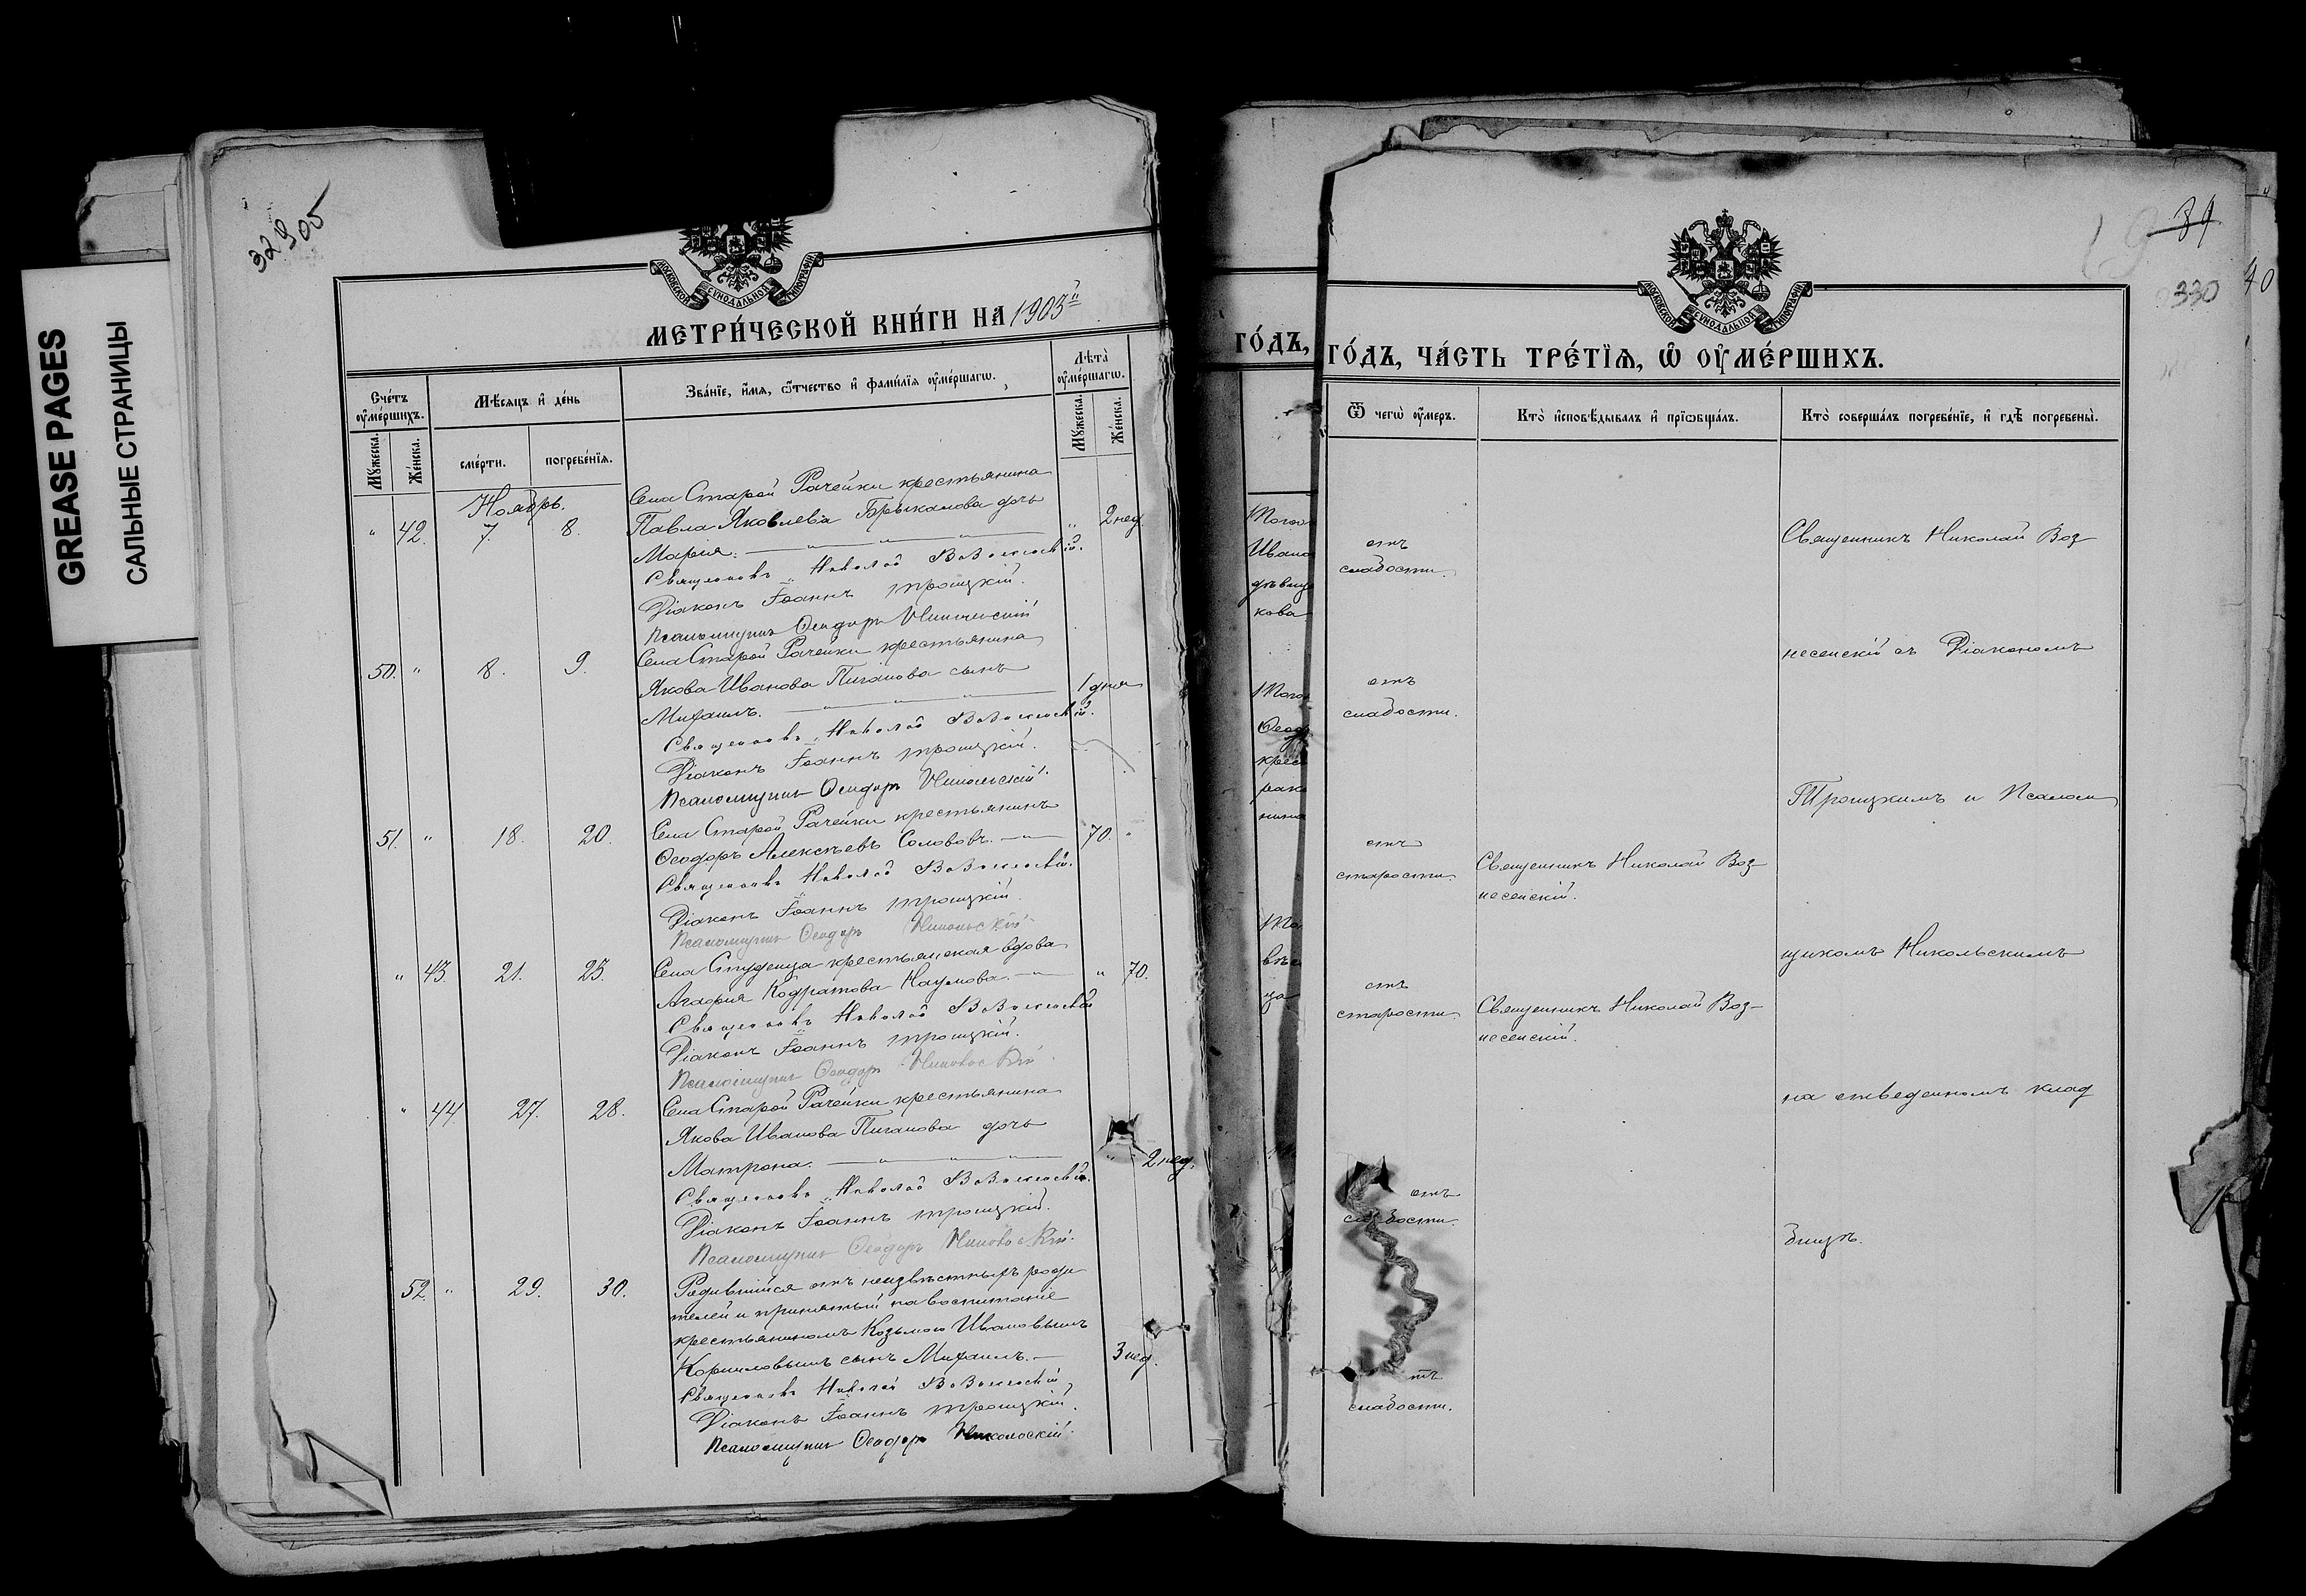 GREASE PAGES
САЛЬНЫЕ СТРАНИЦЫ
329 об
МОСКОВСКОЙ СѴНОДАЛЬНОЙ ТИПОГРАФІИ
МЕТРИ́ЧЕСКОЙ КНИ́ГИ НА 1903й
Сче́тъ ᲂу҆ме́ршихъ.
Мꙋ́жеска.
Же́нска.
Мѣ́сяцъ и҆ де́нь
сме́рти.
погребе́нїя.
Зва́нїе, и҆́мя, ѻ҆́тчество и҆ фами́лїя ᲂу҆ме́ршагѡ.
Лѣ́та ᲂу҆ме́ршагѡ.
Мꙋ́жеска.
Же́нска.
Ноябрь.
Села Старой Рачейки крестьянина
" 42. 7. 8. Павла Яковлева Брыкалова дочь " 2 нед.
Марія.
Священникъ Николай Вознесенскій.
Діаконъ Іоаннъ Троицкій.
Псаломщикъ Ѳеодоръ Никольскій
Села Старой Рачейки крестьянина
50. " 8. 9. Якова Иванова Пиганова сынъ
Михаилъ. 1 дня
Священникъ Николай Вознесенскій.
Діаконъ Іоаннъ Троицкій.
Псаломщикъ Ѳеодоръ Никольскій.
Села Старой Рачейки крестьянинъ
51. " 18. 20. Ѳеодоръ Алексѣевъ Солововъ. 70. "
Священникъ Николай Вознесенскій.
Діаконъ Іоаннъ Троицкій.
Псаломщикъ Ѳеодоръ Никольскій
" 43. 21. 23. Села Студенца крестьянская вдова
Агафія Кодратова Наумова. " 70.
Священникъ Николай Вознесенскій
Діаконъ Іоаннъ Троицкій.
Псаломщикъ Ѳеодоръ Никольскій
" 44. 27. 28. Села Старой Рачейки крестьянина
Якова Иванова Пиганова дочь
Матрона. " 2 нед.
Священникъ Николай Вознесенскій.
Діаконъ Іоаннъ Троицкій.
Псаломщикъ Ѳеодоръ Никольскій.
52. " 29. 30. Родившійся отъ неизвѣстныхъ роди
телей и принятый на воспитаніе
крестьяниномъ Козьмою Ивановымъ
Корниловымъ сынъ Михаилъ. 3 нед.
Священникъ Николай Вознесенскій
Діаконъ Іоаннъ Троицкій.
Псаломщикъ Ѳеодоръ Никольскій.
ГО́ДЪ,
Ивано
дѣвица
кова
Ѳеод
крес
нина
39
330
40
МОСКОВСКОЙ СѴНОДАЛЬНОЙ ТИПОГРАФІИ
ГО́ДЪ, ЧА́СТЬ ТРЕ́ТЇЯ, Ѡ҆ ОУ҆МЕ́РШИХЪ.
Ѿ чегѡ̀ ᲂу҆́меръ.
Кто̀ и҆сповѣ́дывалъ и҆ прїѡбща́лъ.
Кто̀ соверша́лъ погребе́нїе, и҆ гдѣ̀ погребены̀.
отъ
слабости.
Священникъ Николай Воз
несенскій съ Діакономъ
отъ
слабости.
Троицкимъ и Псалом
отъ
старости.
Священникъ Николай Воз-
несенскій.
щикомъ Никольскимъ
отъ
старости.
Священникъ Николай Воз-
несенскій.
на отведенномъ клад
отъ
слабости.
бищѣ.
отъ
слабости.